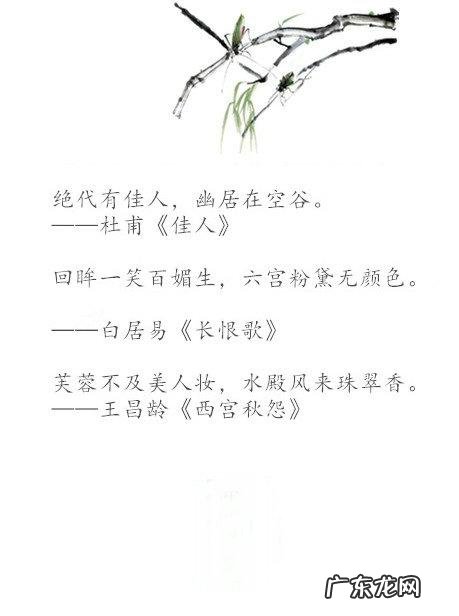 绝代有佳人，幽居在空谷。
——杜甫《佳人》
回眸一笑百媚生，六宫粉黛无颜色。
——白居易《长恨歌》
芙蓉不及美人妆，水殿风来珠翠香。
——王昌龄《西宫秋怨》
广东龙网